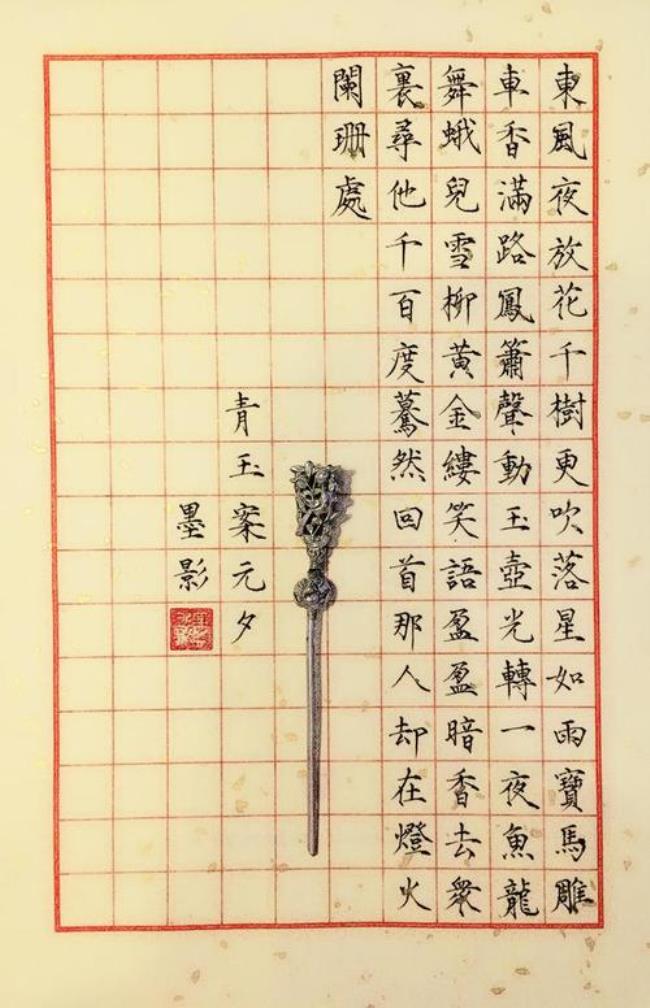 東風夜放花千樹更吹落星如雨寶馬雕
車香滿路鳳簫聲動玉壺光轉一夜魚龍
舞蛾兒雪柳黃金縷笑語盈盈暗香去衆
裏尋他千百度驀然回首那人却在燈火
闌珊處
青玉案元夕
墨影